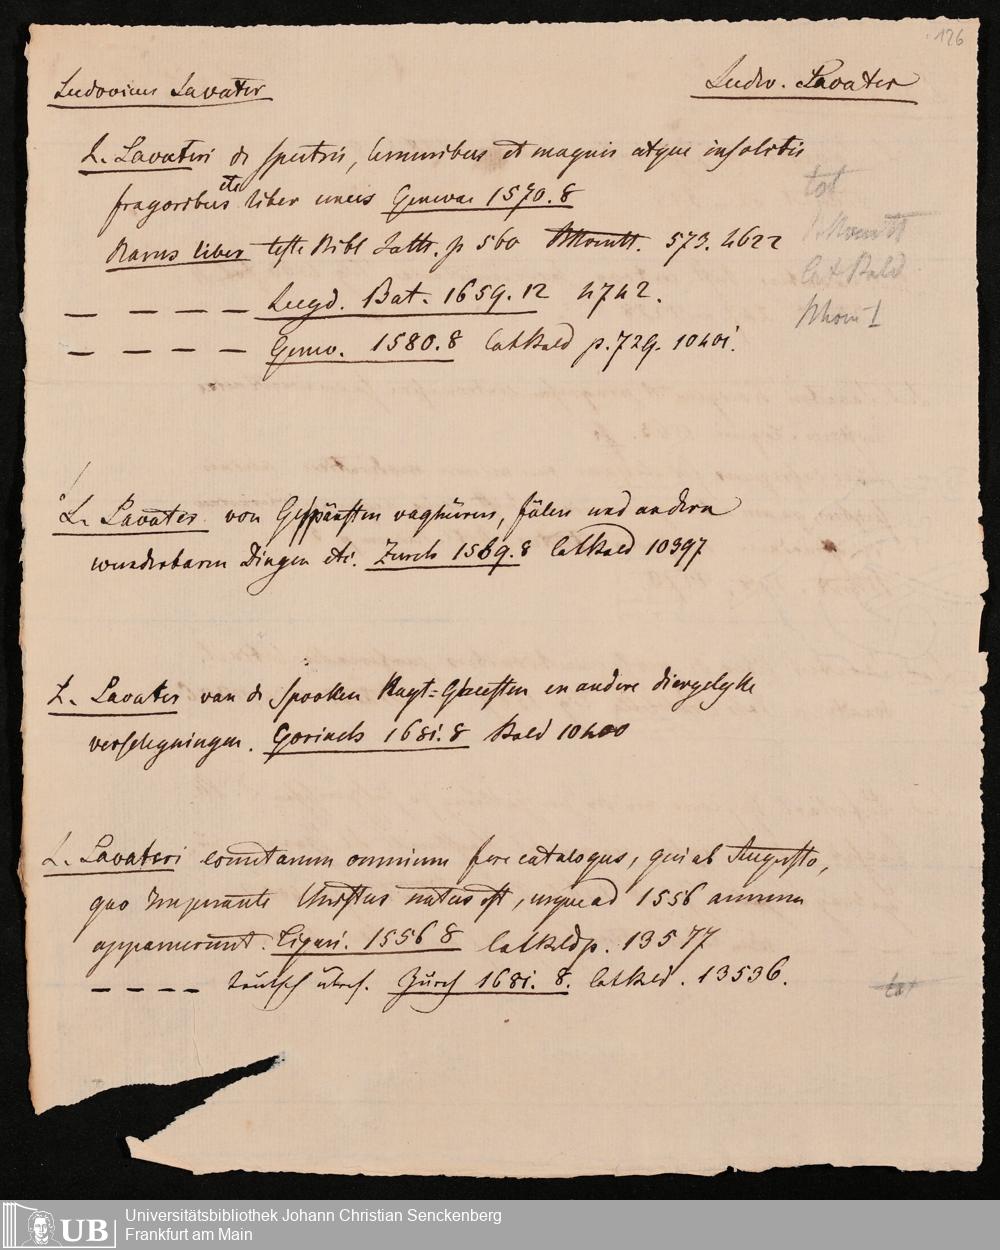 126
Ludovicus Lavater
Ludw. Lavater
L. Lavateri de spectris, lemuribus et magnis atque insolitis
fragoribus etc liber unus Genevae 1570. 8
Rarus liber teste Bibl Salth. p 560 573. 2622
tot
Lugd. Bat. 1659. 12 4742.
Cat Bald
Genev. 1580. 8 Cat Bald p. 729. 10401.
L. Lavater von Gespänsten unghüren, fälen und andern
wunderbaren Dingen etc. Zurch 1569. 8 Cat Bald 10397
L. Lavater van de Spooken Nagt-Gheesten en andere diergelyke
Gorinch 1681. 8 Bald 10400
L. Lavateri cometarum omnium fere catalogus, qui ab Augusto,
quo Imperante Christus natus est, usque ad 1556 annum
apparuerunt. Tiguri. 1556 8 Cat Bald p. 13577
teütsch übers. Zürch 1681. 8. Cat Bald. 13536.
tot
UB
Universitätsbibliothek Johann Christian Senckenberg
Frankfurt am Main